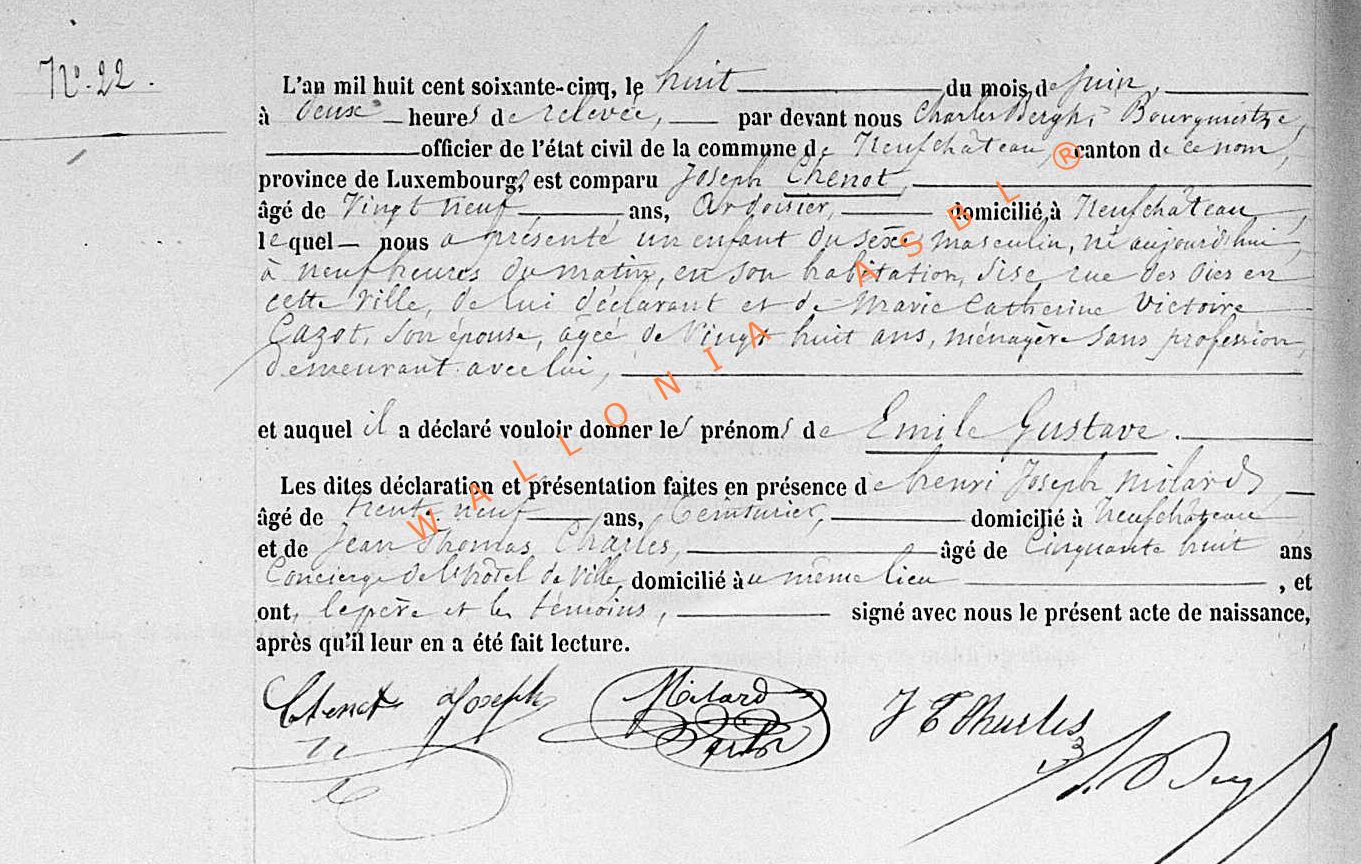 N° 22.
L'an mil huit cent soixante-cinq, le huit du mois de juin,
à deux heures de relevée, par devant nous Charles Bergh, Bourgmestre,
officier de l'état civil de la commune de Neufchâteau, canton de ce nom,
province de Luxembourg, est comparu Joseph Chenot,
âgé de Vingt neuf ans, Ardoisier, domicilié à Neufchâteau,
lequel nous a présenté un enfant du sexe masculin, né aujourd'hui
à neuf heures du matin, en son habitation, sise rue des Oies en
cette ville, de lui déclarant et de Marie Catherine Victoire
Gazot, son épouse, agée de Vingt huit ans, ménagère sans profession,
demeurant avec lui,
et auquel il a déclaré vouloir donner les prénoms de Emile Gustave.
Les dites déclaration et présentation faites en présence de henri Joseph Milard,
âgé de trente neuf ans, Teinturier, domicilié à Neufchâteau
et de Jean Thomas Charles, âgé de Cinquante huit ans
Concierge de l'hôtel de Ville, domicilié au même lieu, et
ont, le père et les témoins, signé avec nous le présent acte de naissance,
après qu'il leur en a été fait lecture.
Chenot Joseph Milard J T Charles
WALLONIA ASBL ®